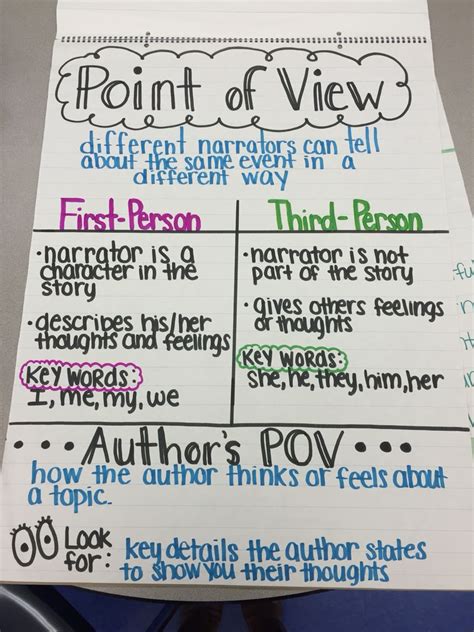 Point of View
different narrators can tell
about the same event in a
different way
First-Person
• narrator is a
character in the
story
• describes his/her
thoughts and feelings
KEY WORDS:
I, me, my, we
Third-Person
• narrator is not
part of the story
• gives others feelings
or thoughts
KEY WORDS:
she, he, they, him, her
• • • Author's POV • • •
how the author thinks or feels about
a topic.
Look
for:
key details the author states
to show you their thoughts